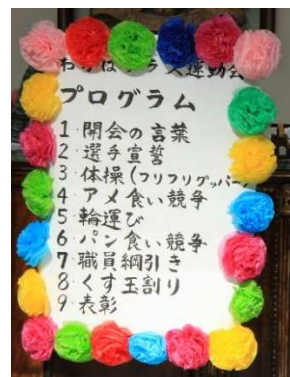 運動会
プログラム
1 開会の言葉
2 選手宣誓
3 体操(フリフリグッパー)
4 アメ食い競争
5 輪運び
6 パン食い競争
7 職員綱引き
8 くす玉割り
9 表彰